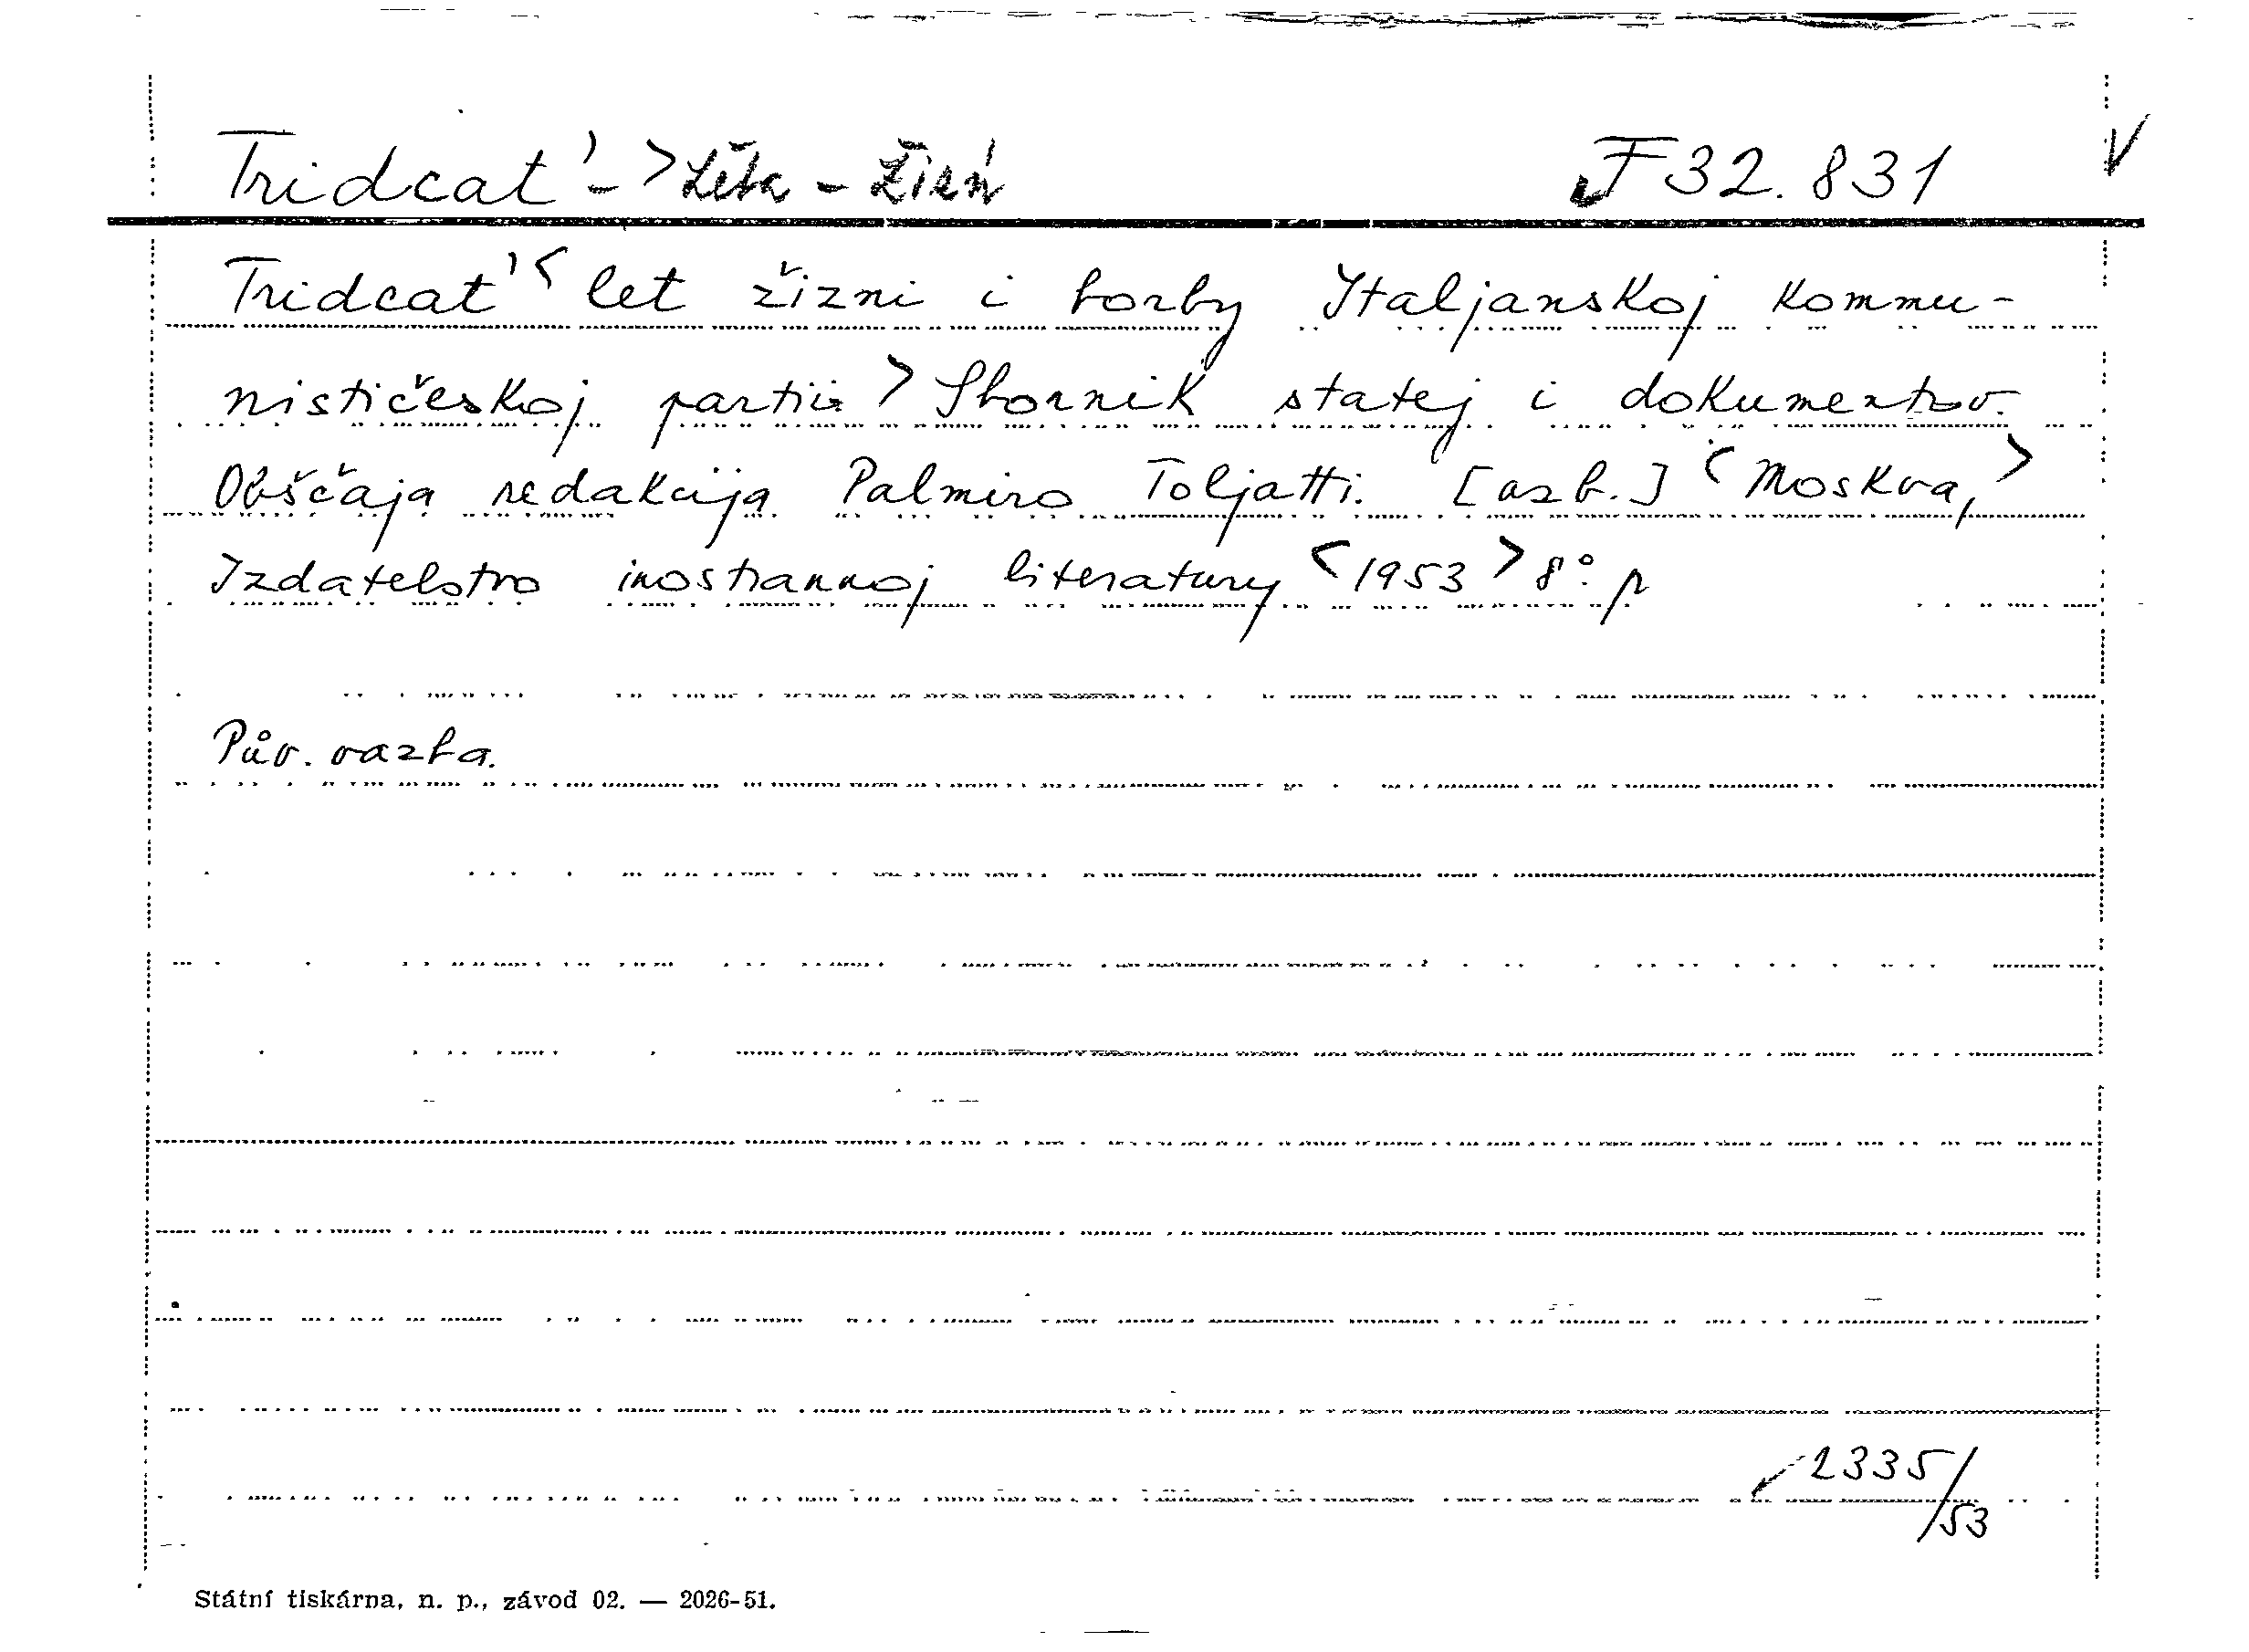 Tridcat' -> Léta - Žizń F 32.831 V
Tridcat' < let žizni i borby Italjanskoj kommu-
nističeskoj partii > Sbornik statej i dokumentov.
Obščaja redakcija Palmiro Toljatti. [azb.] < Moskva, >
Izdatelstvo inostrannoj literatury < 1953 > 8°. p
Pův. vazba.
2335/53
Státní tiskárna, n. p., závod 02. — 2026-51.